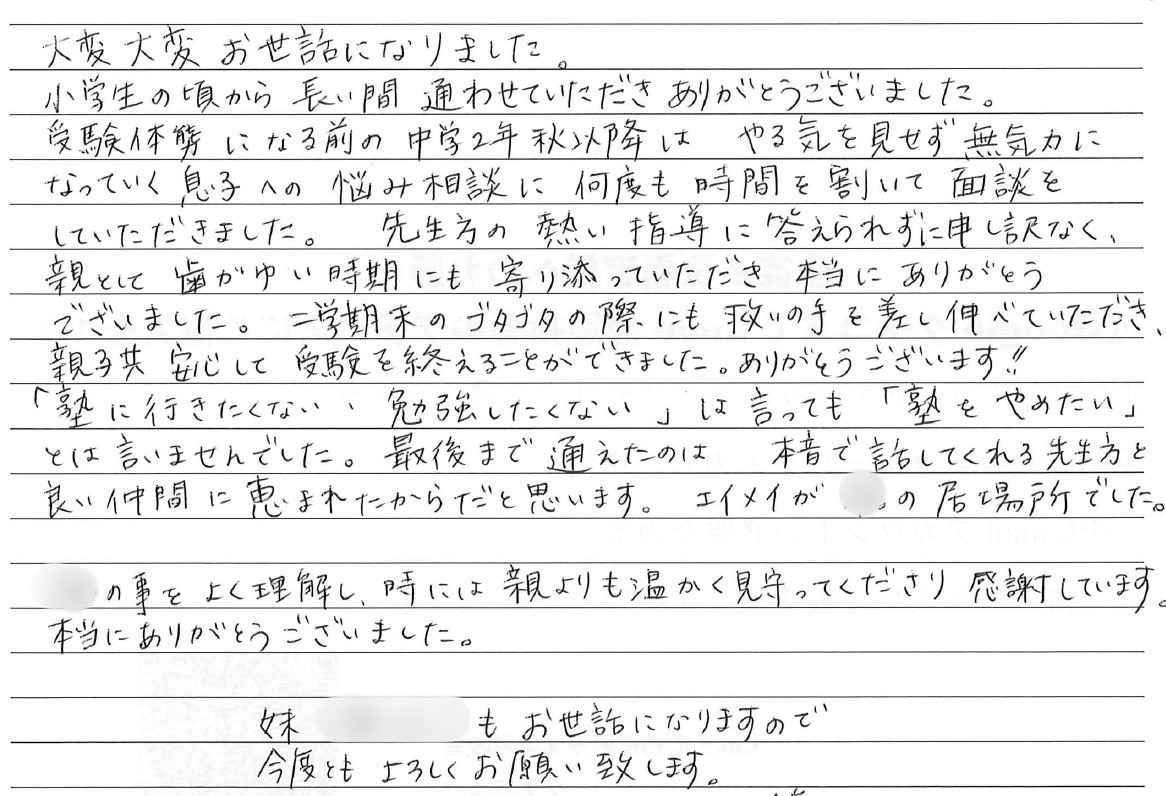 大変大変お世話になりました。
小学生の頃から長い間通わせていただきありがとうございました。
受験体勢になる前の中学2年秋以降は やる気を見せず無気力に
なっていく息子への悩み相談に何度も時間を割いて面談を
していただきました。 先生方の熱い指導に答えられずに申し訳なく、
親として歯がゆい時期にも寄り添っていただき本当にありがとう
でざいました。二学期末のゴタゴタの際にも救いの手を差し伸べていただき、
親子共安心して受験を終えることができました。ありがとうございます!!
「塾に行きたくない、勉強したくない」は言っても「塾をやめたい」
とは言いませんでした。最後まで通えたのは 本音で話してくれる先生方と
良い仲間に恵まれたからだと思います。エイメイが の居場所でした。
の事をよく理解し、時には親よりも温かく見守ってくださり感謝しています。
本当にありがとうございました。
妹 もお世話になりますので
今度ともよろしくお願い致します。